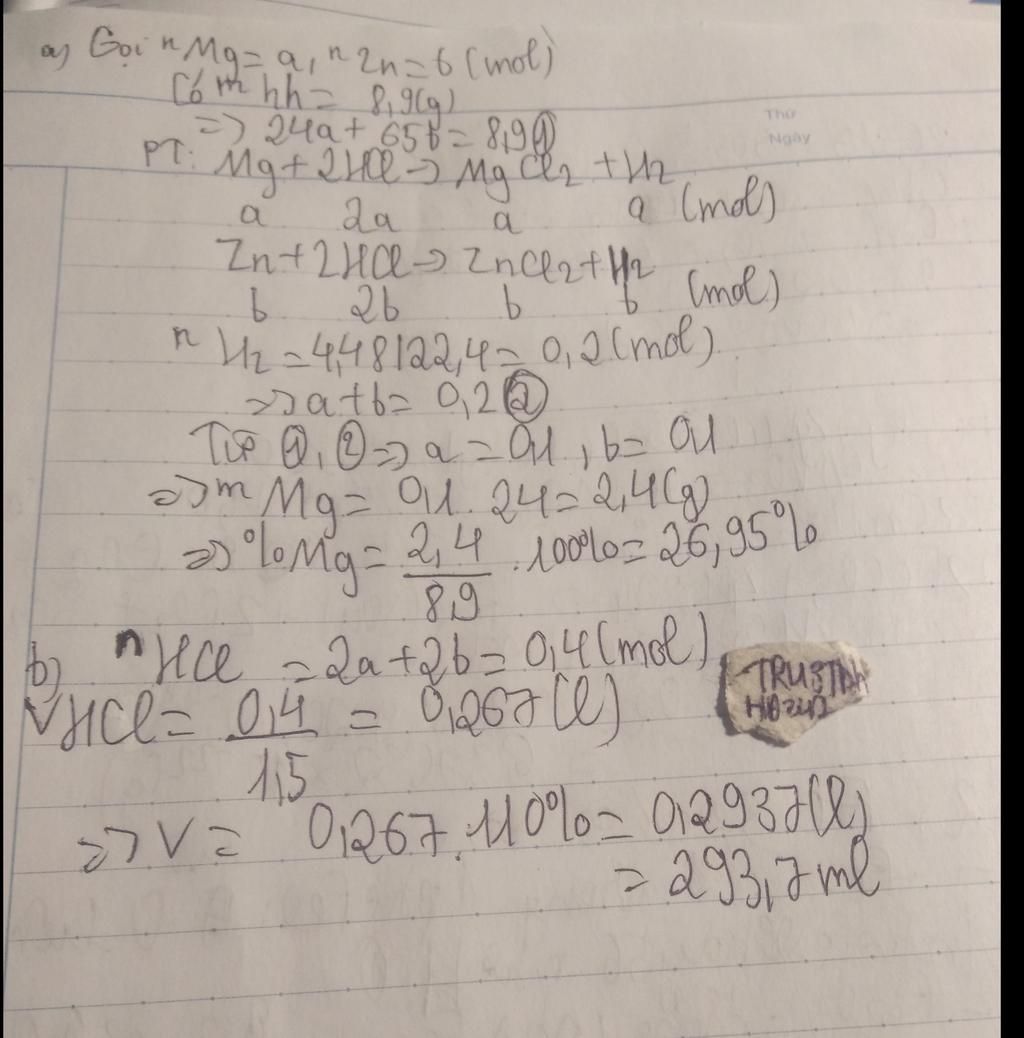 a) Gọi nMg = a, nZn = b (mol)
Có m hh = 8,9(g)
=> 24a + 65b = 8,9 ①
Thứ
Ngày
PT: Mg + 2HCl -> MgCl2 + H2
a 2a a a (mol)
Zn + 2HCl -> ZnCl2 + H2
b 2b b b (mol)
n H2 = 4,48/22,4 = 0,2 (mol)
=> a + b = 0,2 ②
Từ ①, ② => a = 0,1, b = 0,1
=> m Mg = 0,1. 24 = 2,4(g)
=> %Mg = 2,4/8,9 . 100% = 26,95%
b) nHCl = 2a + 2b = 0,4 (mol)
VHCl = 0,4/1,5 = 0,267 (l)
=> V = 0,267. 110% = 0,2937(l)
= 293,7 ml